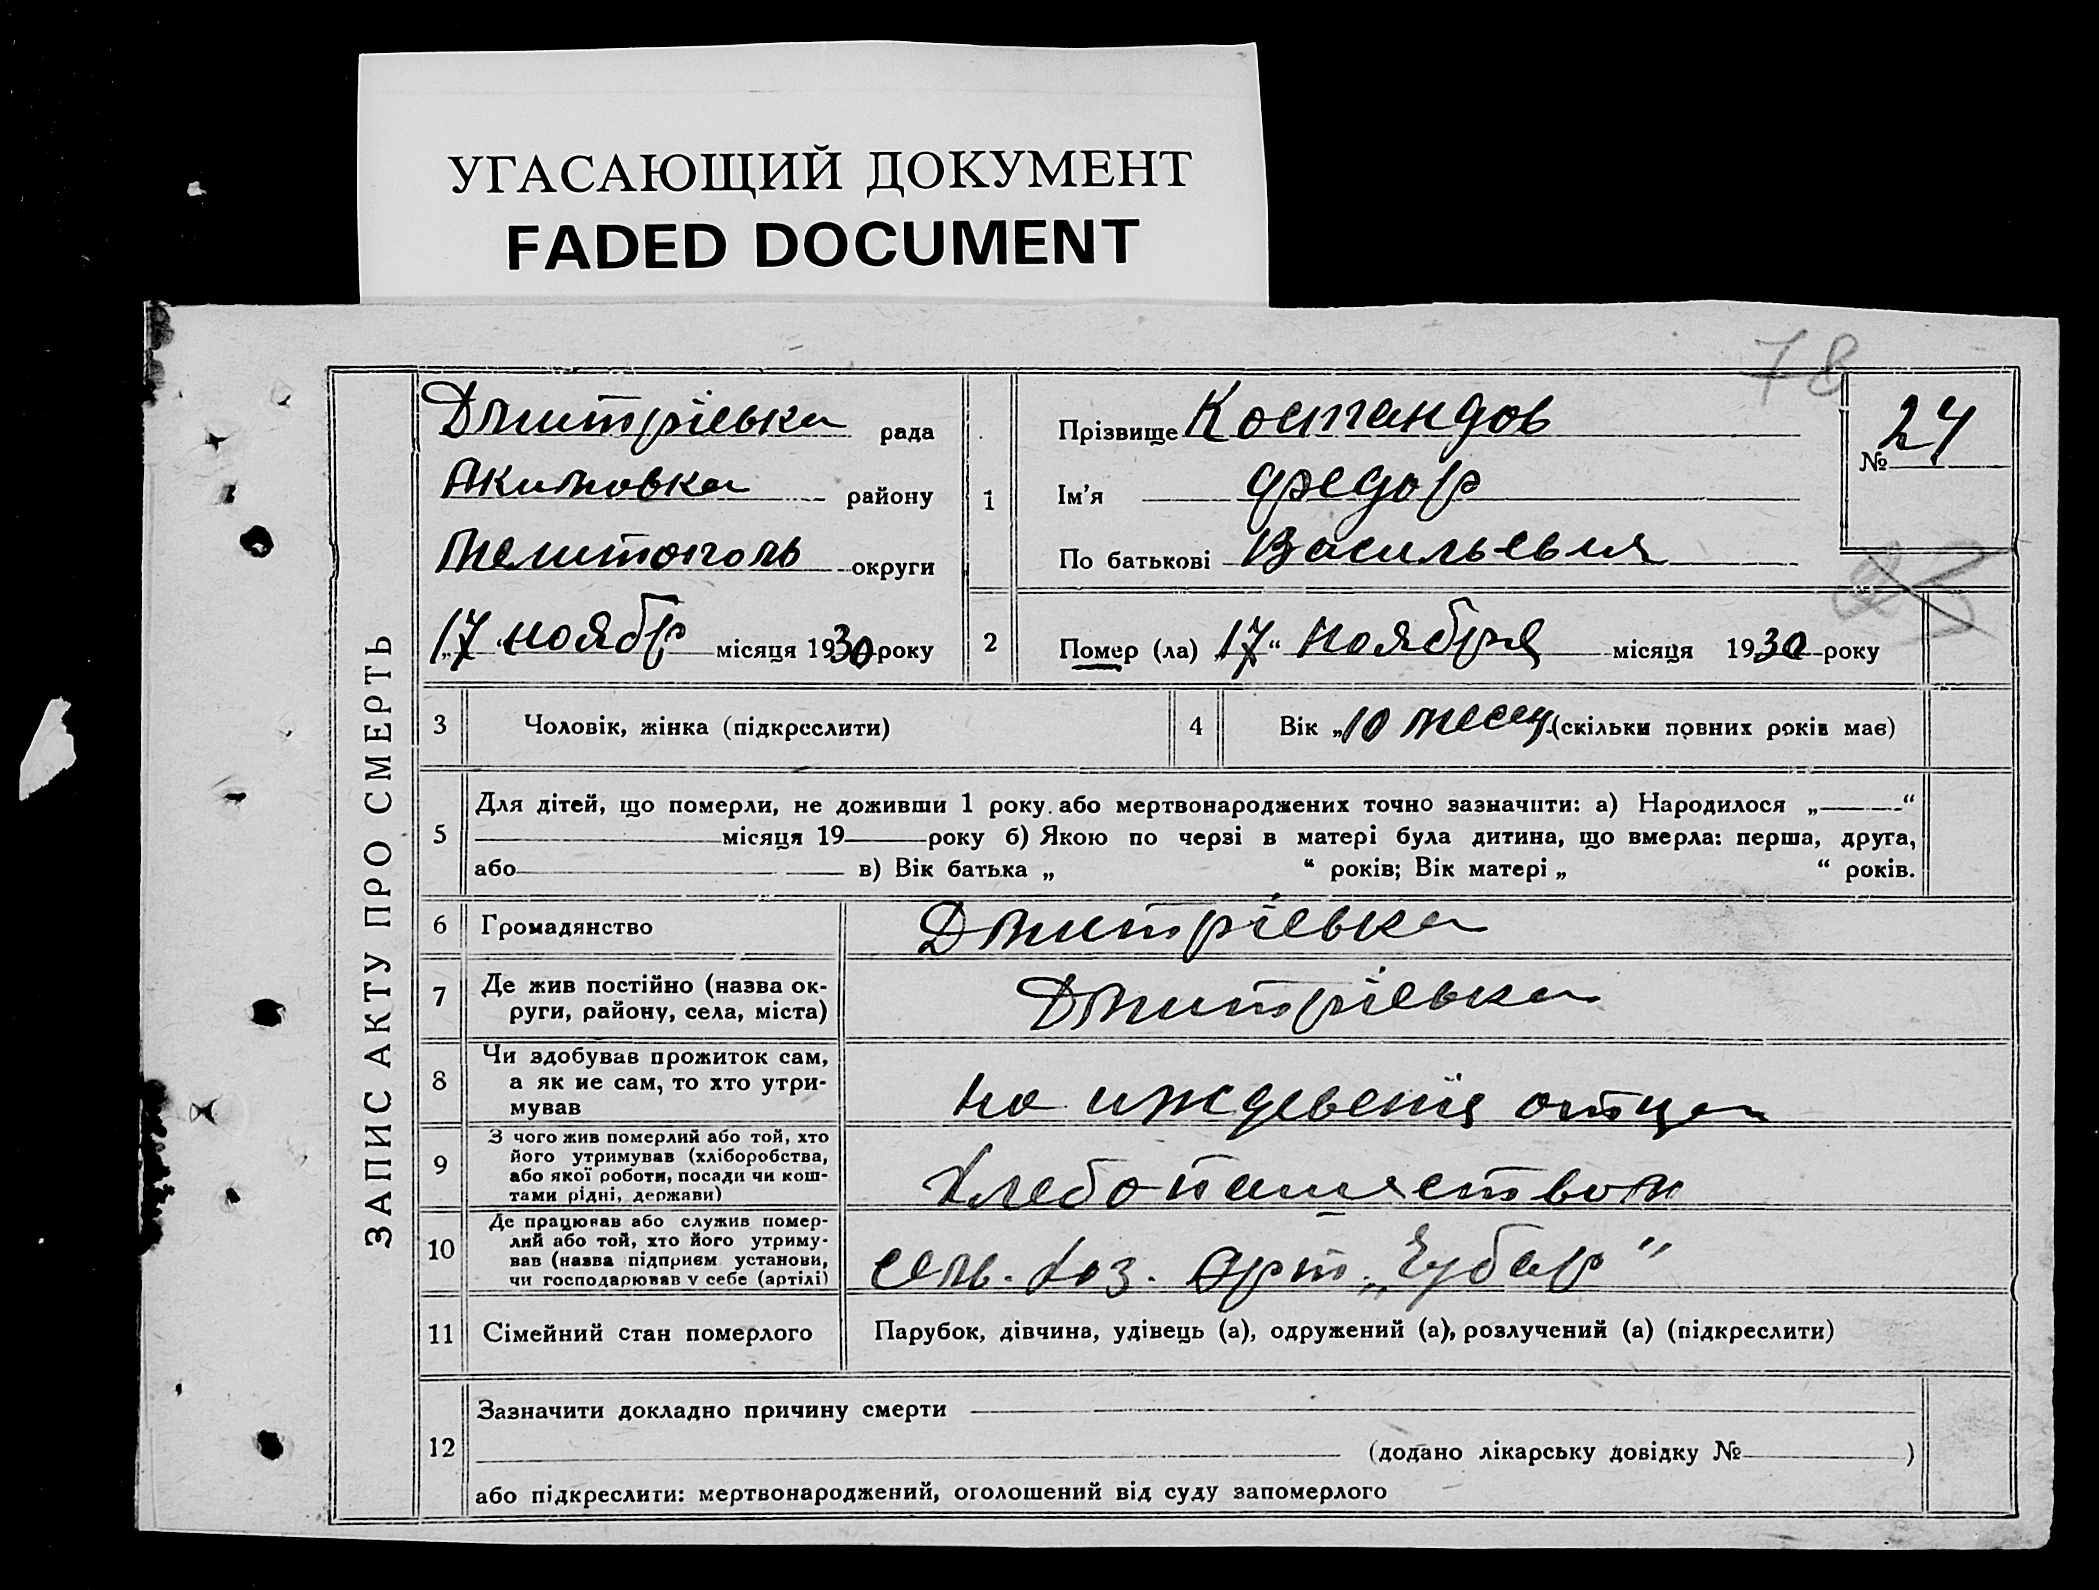 УГАСАЮЩИЙ ДОКУМЕНТ
FADED DOCUMENT
78
ЗАПИС АКТУ ПРО СМЕРТЬ
Дмитрієвка рада
Акимовка району
Мелитополь округи
„17 ноябр місяця 1930 року
1
Прізвище Костандов
Ім'я Федор
По батькові Васильевич
№ 24
2
Помер (ла) „17“ Ноября місяця 1930 року
3 Чоловік, жінка (підкреслити)
4 Вік „10 месец. (скільки повних років має)
5 Для дітей, що померли, не доживши 1 року або мертвонароджених точно зазначити: а) Народилося „ “
місяця 19 року б) Якою по черзі в матері була дитина, що вмерла: перша, друга,
або в) Вік батька „ “ років; Вік матері „ “ років.
6 Громадянство Дмитрієвка
7 Де жив постійно (назва ок-
руги, району, села, міста) Дмитрієвка
8 Чи здобував прожиток сам,
а як не сам, то хто утри-
мував
на иждевенія отца
9 З чого жив померлий або той, хто
його утримував (хліборобства,
або якої роботи, посади чи кош-
тами рідні, держави)
Хлебопашеством
10 Де працював або служив помер-
лий або той, хто його утриму-
вав (назва підприєм установи,
чи господарював у себе (артілі)
сель. Хоз. Арт.
11 Сімейний стан померлого Парубок, дівчина, удівець (а), одружений (а), розлучений (а) (підкреслити)
12 Зазначити докладно причину смерти
(додано лікарську довідку № )
або підкреслити: мертвонароджений, оголошений від суду запомерлого